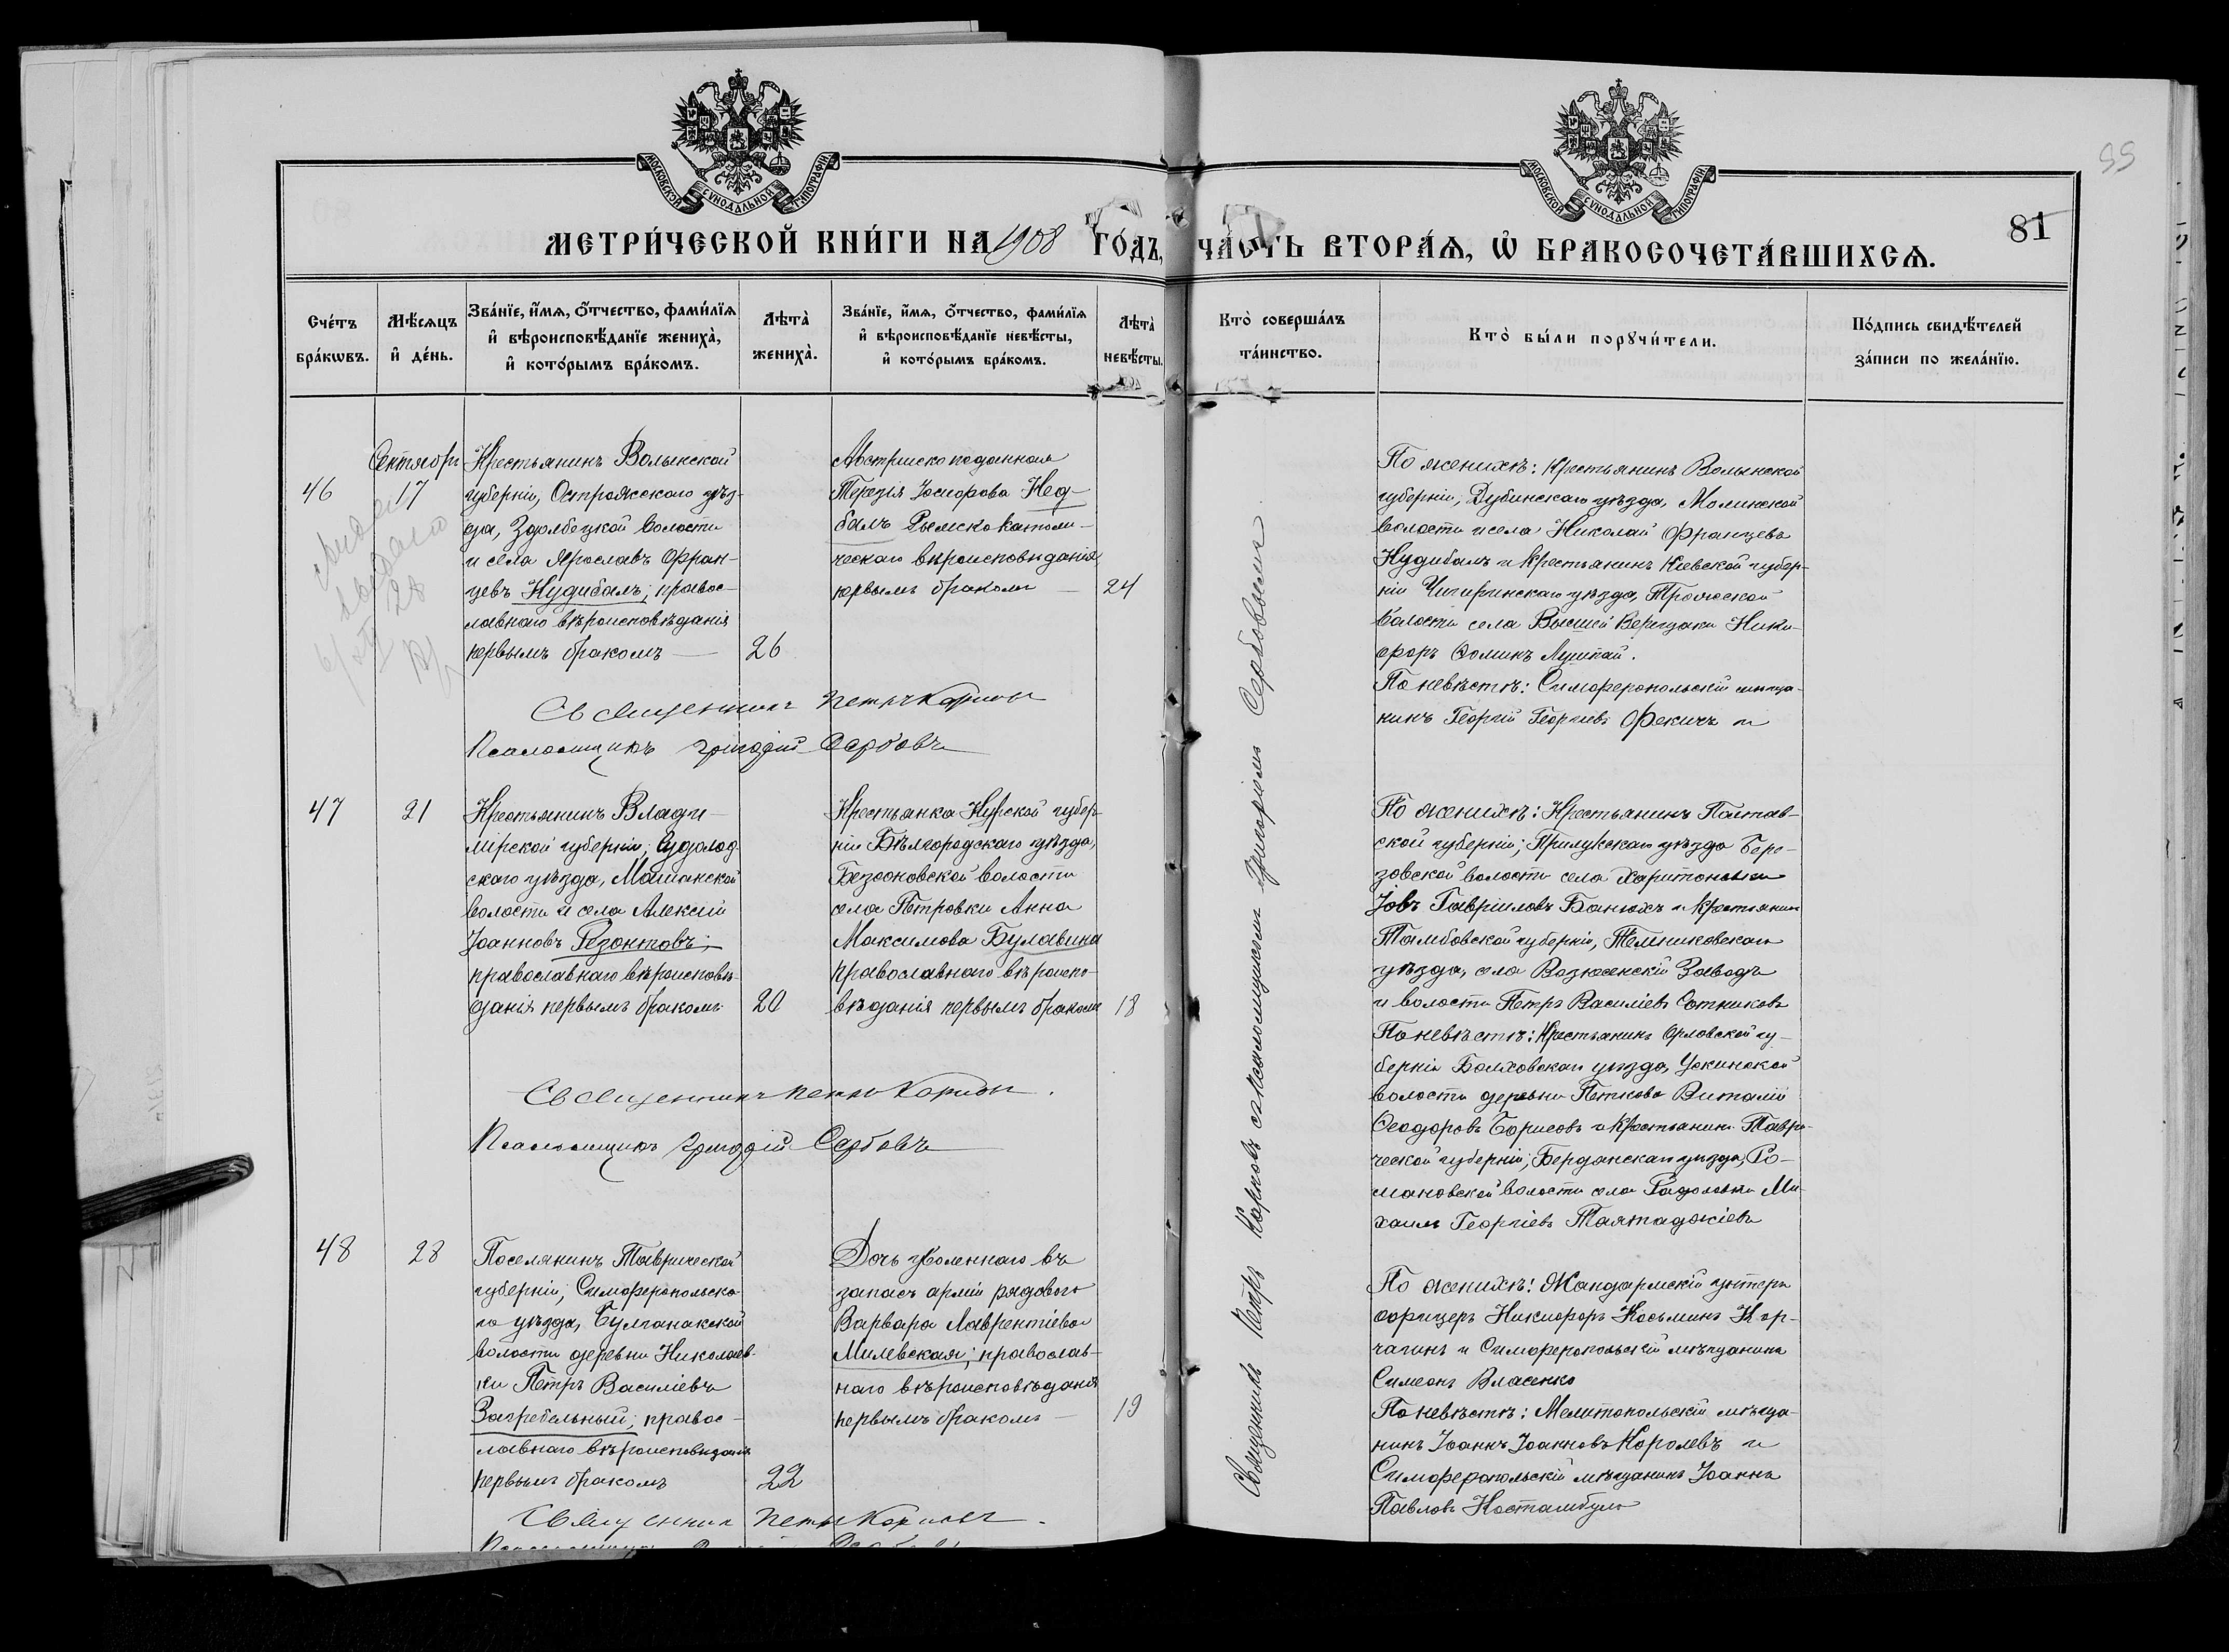 МОСКОВСКОЙ СѴНОДАЛЬНОЙ ТИПОГРАФІИ
МОСКОВСКОЙ СѴНОДАЛЬНОЙ ТИПОГРАФІИ
55
81
МЕТРИ́ЧЕСКОЙ КНИ́ГИ НА 1908 ГО́ДЪ, ЧА́СТЬ ВТОРА́Ѧ, Ѽ БРАКОСОЧЕТА́ВШИХСѦ.
Сче́тъ
бра́кѡвъ.
Мѣ́сяцъ
и҆ де́нь.
Зва́нїе, и҆́мѧ, о҆́тчество, фами́лїѧ
и҆ вѣроисповѣ́данїе жениха̀,
и҆ кото́рымъ бра́комъ.
Лѣ́та̀
жениха̀.
Зва́нїе, и҆́мѧ, о҆́тчество, фами́лїѧ
и҆ вѣроисповѣ́данїе невѣ́сты,
и҆ кото́рымъ бра́комъ.
Лѣ́та̀
невѣ́сты.
Кто̀ соверша́лъ
та́инство.
Кто̀ бы́ли порꙋчи́тели.
По́дпись свидѣ́телей
за́писи по жела́нїю.
46
Сентябрь
17
Крестьянинъ Волынской
губерніи, Острожскаго уѣз-
да, Здолбецкой волости
и села Ярославъ Фран-
цевъ Нудибалъ, правос-
лавнаго вѣроисповѣданія
первымъ бракомъ
26
Австрійскоподданная
Терезія Іосифова Нед-
балъ Римскокатоли-
ческаго вѣроисповѣданія
первымъ бракомъ
24
По женихѣ: крестьянинъ Волынской
губерніи, Дубинскаго уѣзда, Молинской
волости и села Николай Францевъ
Нудибалъ и крестьянинъ Кіевской губер-
ніи Чигиринскаго уѣзда, Трояской
волости села Высшей Верещаки Ники-
форъ Фоминъ
По невѣстѣ: Симферопольскій мѣща-
нинъ Георгій Георгіевъ Фекичъ и
Священникъ Петръ Карповъ
Псаломщикъ Григорій Сербовъ
47
21
Крестьянинъ Влади-
мірской губерніи, Судогод
скаго уѣзда, Мошинской
волости и села Алексій
Іоанновъ Рѣзонтовъ,
православнаго вѣроисповѣ-
данія первымъ бракомъ
20
Крестьянка Курской губер-
ніи Бѣлгородскаго уѣзда,
Безсоновской волости
села Петровки Анна
Максимова Булавина
православнаго вѣроиспо-
вѣданія первымъ бракомъ
18
По женихѣ: Крестьянинъ Полтав-
ской губерніи, Прилукскаго уѣзда Бере-
зовской волости села Харитоновки
Іовъ Гавріиловъ и крестьянинъ
Тамбовской губерніи, Темниковскаго
уѣзда, села Вознесенскій Заводъ
и волости Петръ Василіевъ Сотниковъ
По невѣстѣ: Крестьянинъ Орловской гу-
берніи Болховскаго уѣзда,
волости деревни Петкова Виталій
Феодоровъ Борисовъ и крестьянинъ Таври-
ческой губерніи, Бердянскаго уѣзда, Ро-
мановской волости села Радоловки Ми-
хаилъ Георгіевъ
Священникъ Петръ Карповъ.
Псаломщикъ Григорій Сербовъ
48
28
Поселянинъ Таврической
губерніи, Симферопольска
го уѣзда, Булганакской
волости деревни Николаев-
ки Петръ Василіевъ
Загребельный, правос-
лавнаго вѣроисповѣданія
первымъ бракомъ
22
Дочь уволеннаго въ
запасъ арміи рядового
Варвара Лаврентіева
Милевская, православ-
наго вѣроисповѣданія
первымъ бракомъ
19
По женихѣ: Жандармскій унтеръ
офицеръ Никифоръ Косьминъ Кор-
чагинъ и Симферопольскій мѣщанинъ
Симеонъ Власенко
По невѣстѣ: Мелитопольскій мѣща-
нинъ Іоаннъ Іоанновъ Королевъ и
Симферопольскій мѣщанинъ Іоаннъ
Павловъ Костамбулъ
Священникъ Петръ Карповъ.
Священникъ Петръ Карповъ съ псаломщикомъ Григоріемъ Сербовымъ